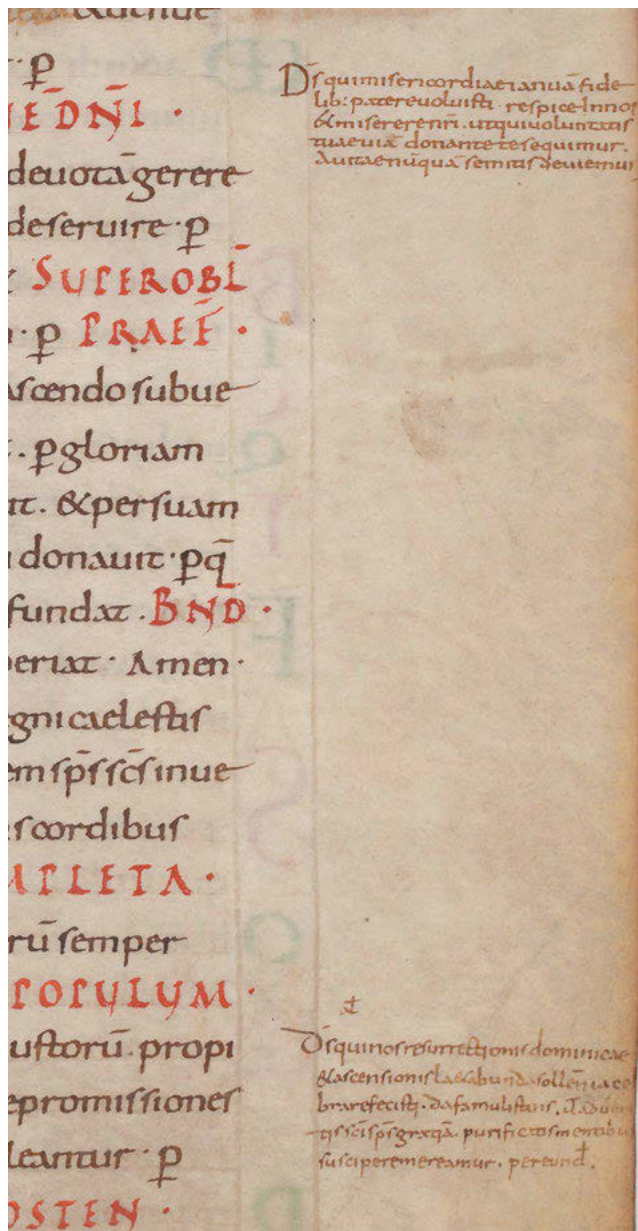 & auctitue
· p̄
IE DN̄I ·
deuotā gerere
deseruire · p̄
SUPER OBL̄
· p̄ PRAEF̄ ·
ascendo subue
· p̄ gloriam
it · & persuam
donauit · p̄ q̄
fundat · BND ·
periat · Amen ·
gni caelestis
em sp̄s sc̄s inue
s cordibus
MPLETA ·
rū semper
POPULUM ·
ustorū propi
epromissiones
leantur · p̄
OSTEN ·
D̄s qui misericordiae ianuā fide
lib: patere uoluisti · respice In nos
& miserere nr̄i · ut qui uoluntatis
tuae uiā donante te sequimur ·
A uitae nūquā semitis deuiemur
D̄s qui nos resurrectionis dominicae
& ascensionis laetabunda sollēnia ce
brare fecisti · da famulis tuis ·
tis sc̄i sp̄s gratiā · purificatis mentibus
suscipere mereamur · per eund̄ ·